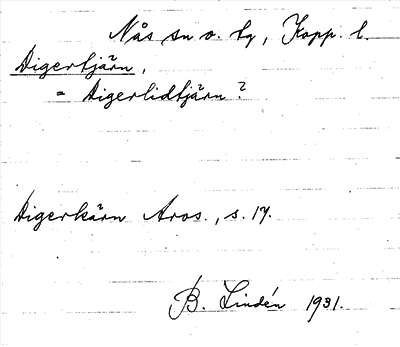 Nås sn o. tg, Kopp. l.
Digertjärn,
= Digerlidtjärn?
Digerkärn Aros., s. 17.
B. Lindén 1931.